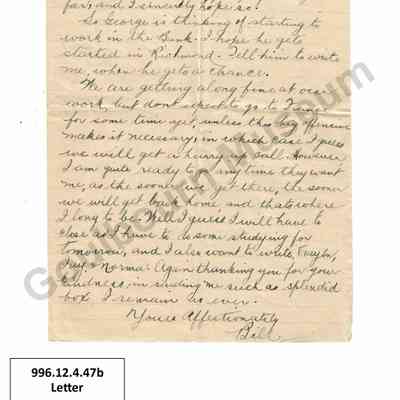 far, and I sincerely hope so!
So George is thinking of starting to
work in the Bank. I hope he gets
started in Richmond. Tell him to write
me, when he gets a chance.
We are getting along fine at our
work, but dont expect to go to France
for some time yet, unless this big Offensive
makes it necessary, in which case I guess
we will get a hurry up call. However
I am quite ready to go any time they want
me, as the sooner we get there, the sooner
we will get back home, and thats where
I long to be. Well I guess I will have to
close as I have to do some studying for
tomorrow, and I also want to write
& Norma. Again thanking you for your
kindness, in sending me such a splendid
box, I remain as ever.
Yours Affectionately
Bill
Goulbourn Museum
996.12.4.47b
Letter